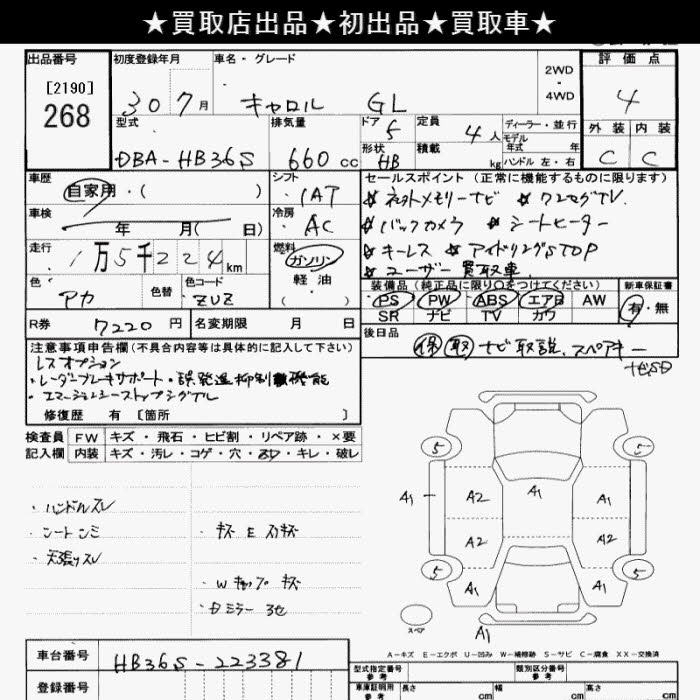 ★買取店出品★初出品★買取車★
出品番号
[2190]
268
初度登録年月
30 7月
車名・グレード
キャロル GL
2WD
・
4WD
評価点
4
外装 内装
C C
型式
DBA-HB36S
排気量
660cc
ドア
5
形状
HB
定員
4人
積載
kg
ディーラー・並行
モデル
年式 年
ハンドル 左・右
車歴
自家用・( )
シフト
IAT
車検
年 月( 日)
冷房
AC
走行
1万5千224km
燃料
ガソリン
軽油
( )
色
アカ
色替
色コード
ZUZ
R券
7220円
名変期限 月 日
セールスポイント(正常に機能するものに限ります)
☆ネットメモリーナビ ☆ワンセグTV
☆バックカメラ ☆シートヒーター
☆キーレス ☆アイドリングSTOP
☆ユーザー買取車
装備品(純正品に限り○をつけてください)
PS PW ABS エアB AW
SR ナビ TV カワ
新車保証書
有・無
後日品
保 取 ナビ取説、スペアキー
ナビSD
注意事項申告欄(不具合内容等は具体的に記入して下さい)
レスオプション
・レーダーブレーキサポート・誤発進抑制機能
・エマージェンシーストップシグナル
修復歴 有 [箇所 ]
検査員
記入欄
FW キズ・飛石・ヒビ割・リペア跡・×要
内装 キズ・汚レ・コゲ・穴・スレ・キレ・破レ
・ハンドルスレ
・シートシミ
・天張りスレ
・キズ E スリキズ
・Wキャップ キズ
5 5
A1 A2 A1 A1
A2 A2
5 A1 A1 5
スペア
A1
A-キズ E-エクボ U-凹み W-補修跡 S-サビ C-腐食 XX-交換済
車台番号
HB36S-223381
登録番号
型式指定番号
参考
類別区分番号
参考
車庫証明用
参考
長さ cm
幅 cm
高さ cm